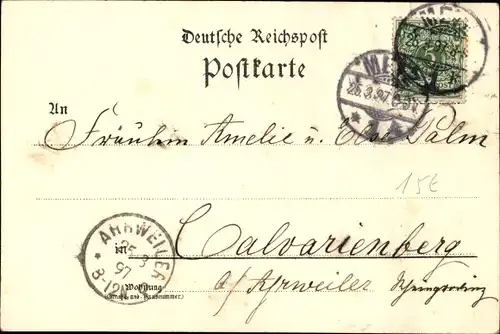 Deutsche Reichspost
Postkarte
An
Fräulein Amelie u. Elsa Palm
15€
in
Calvarienberg
a/ Ahrweiler Rheinprovinz
Wohnung
(Straße und Hausnummer)
25.3.97.
AHRWEILER
25 3
97
8-12N